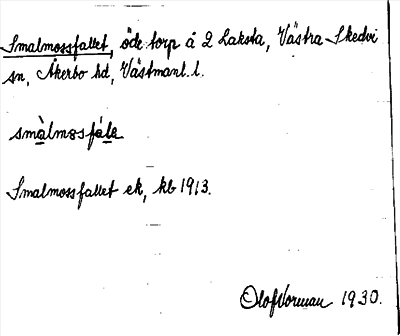 Smalmossfallet, öde torp å 2 Laksta, Västra Skedvi
sn, Åkerbo hd, Västmanl. l.
smàlmosfále
Smalmossfallet ek, kb 1913.
Olof Vorman 1930.